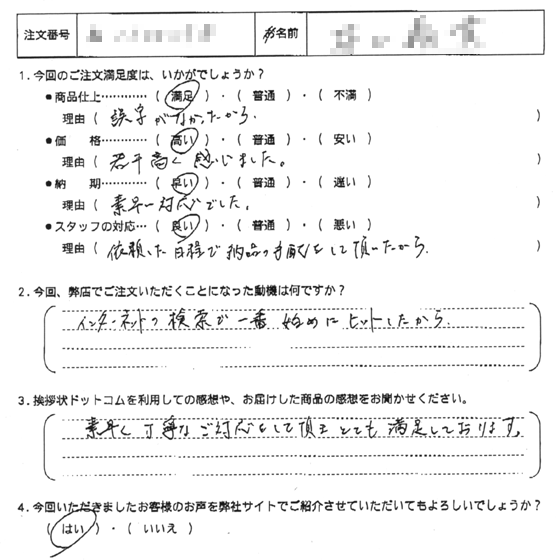 注文番号 お名前
1.今回のご注文満足度は、いかがでしょうか?
●商品仕上…………( 満足 )・( 普通 )・( 不満 )
理由( 誤字がなかったから. )
●価 格…………( 高い )・( 普通 )・( 安い )
理由( 若干高く感じました。 )
●納 期…………( 早い )・( 普通 )・( 遅い )
理由( 素早い対応でした. )
●スタッフの対応…( 良い )・( 普通 )・( 悪い )
理由( 依頼した日程で納品の手配をして頂いたから. )
2.今回、弊店でご注文いただくことになった動機は何ですか?
インターネットの検索が一番始めにヒットしたから.
3.挨拶状ドットコムを利用しての感想や、お届けした商品の感想をお聞かせください。
素早く丁寧なご対応をして頂き とても満足しております。
4.今回いただきましたお客様のお声を弊社サイトでご紹介させていただいてもよろしいでしょうか?
( はい )・( いいえ )